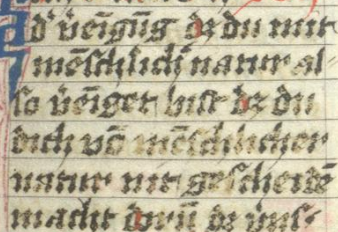 d' v̈eigūg dz du mit
mēschlich̄ natur al-
so v̈eiget bist dz du
dich vō mēschlicher
natur nit gescheidē
macht dorū dz